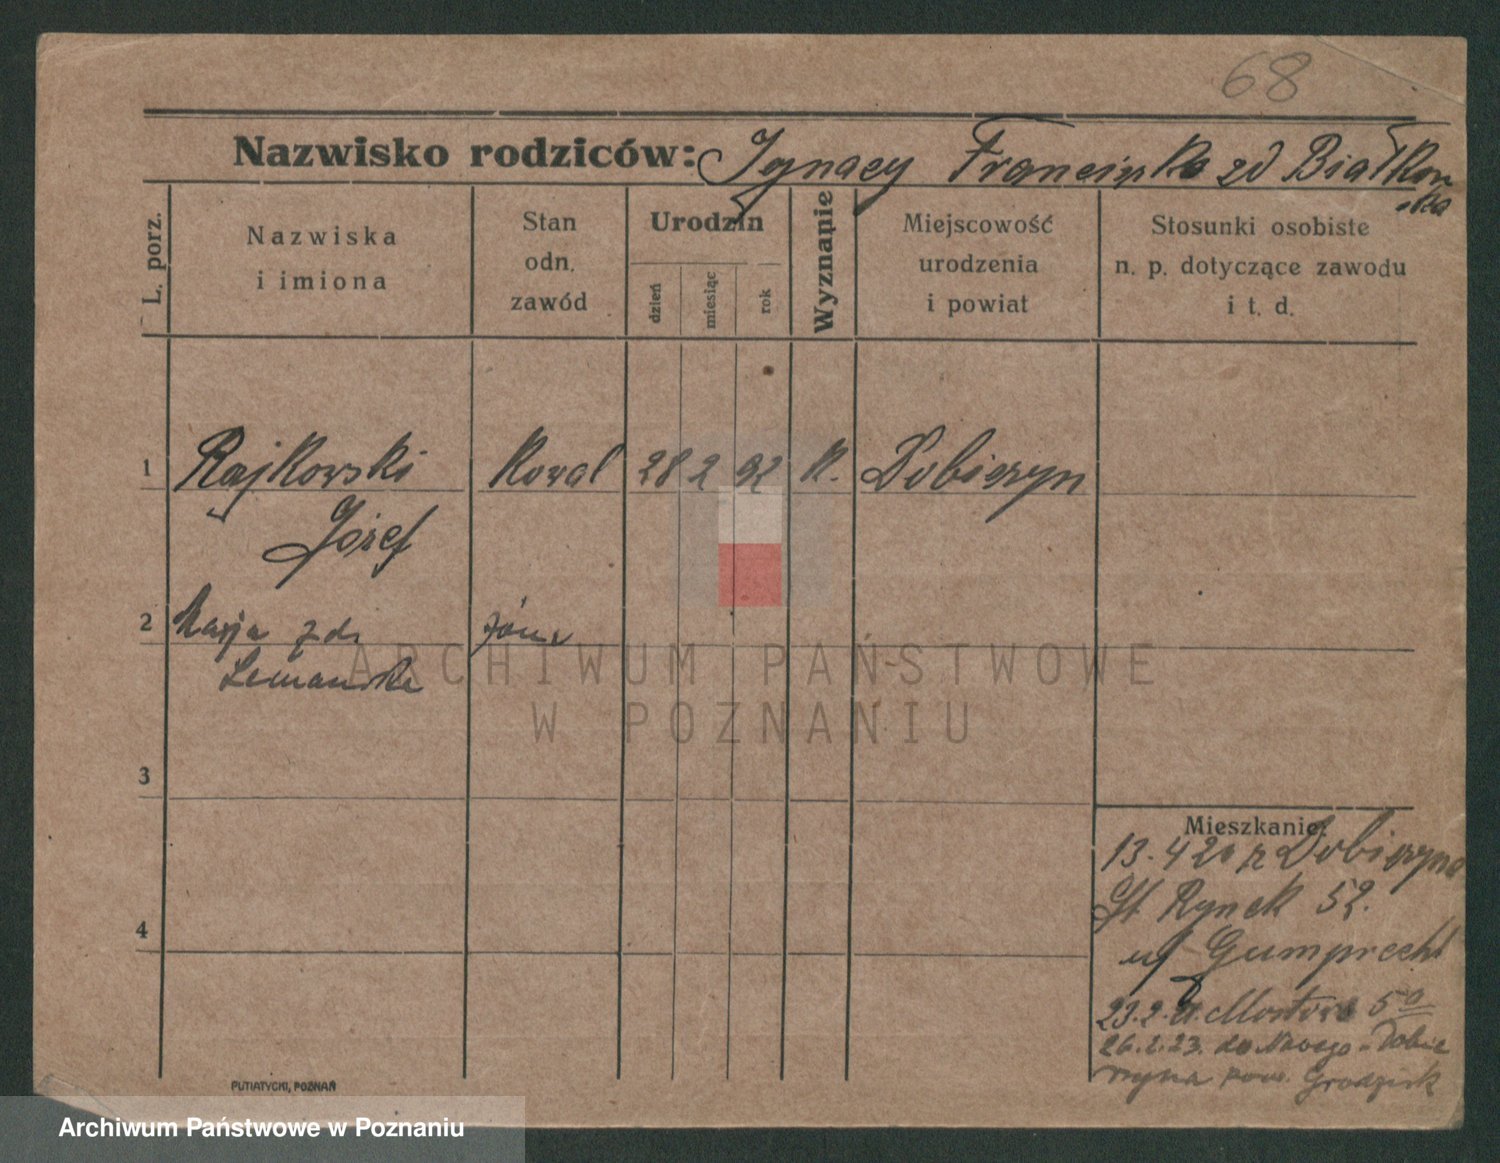 68
Nazwisko rodziców: Ignacy Franciszka zd Białkow
ska
L. porz.
Nazwiska
i imiona
Stan
odn.
zawód
Urodzin
dzień
miesiąc
rok
Wyznapie
Miejscowość
urodzenia
i powiat
Stosunki osobiste
n. p. dotyczące zawodu
i t. d.
1 Rajkowski Kowal 28 2 92 K. Dobieżyn
Józef
2 Marja zd. żona
Lemańska
ARCHIWUM PAŃSTWOWE
W POZNANIU
3
4
Mieszkanie:
13. 4 20 z Dobieżyna
St Rynek 52.
u Gumprecht
23.2. Mostowa 5a
26.2.23. do Nowego-Dobie
żyna pow. Grodzisk
PUTIATYCKI, POZNAŃ
Archiwum Państwowe w Poznaniu